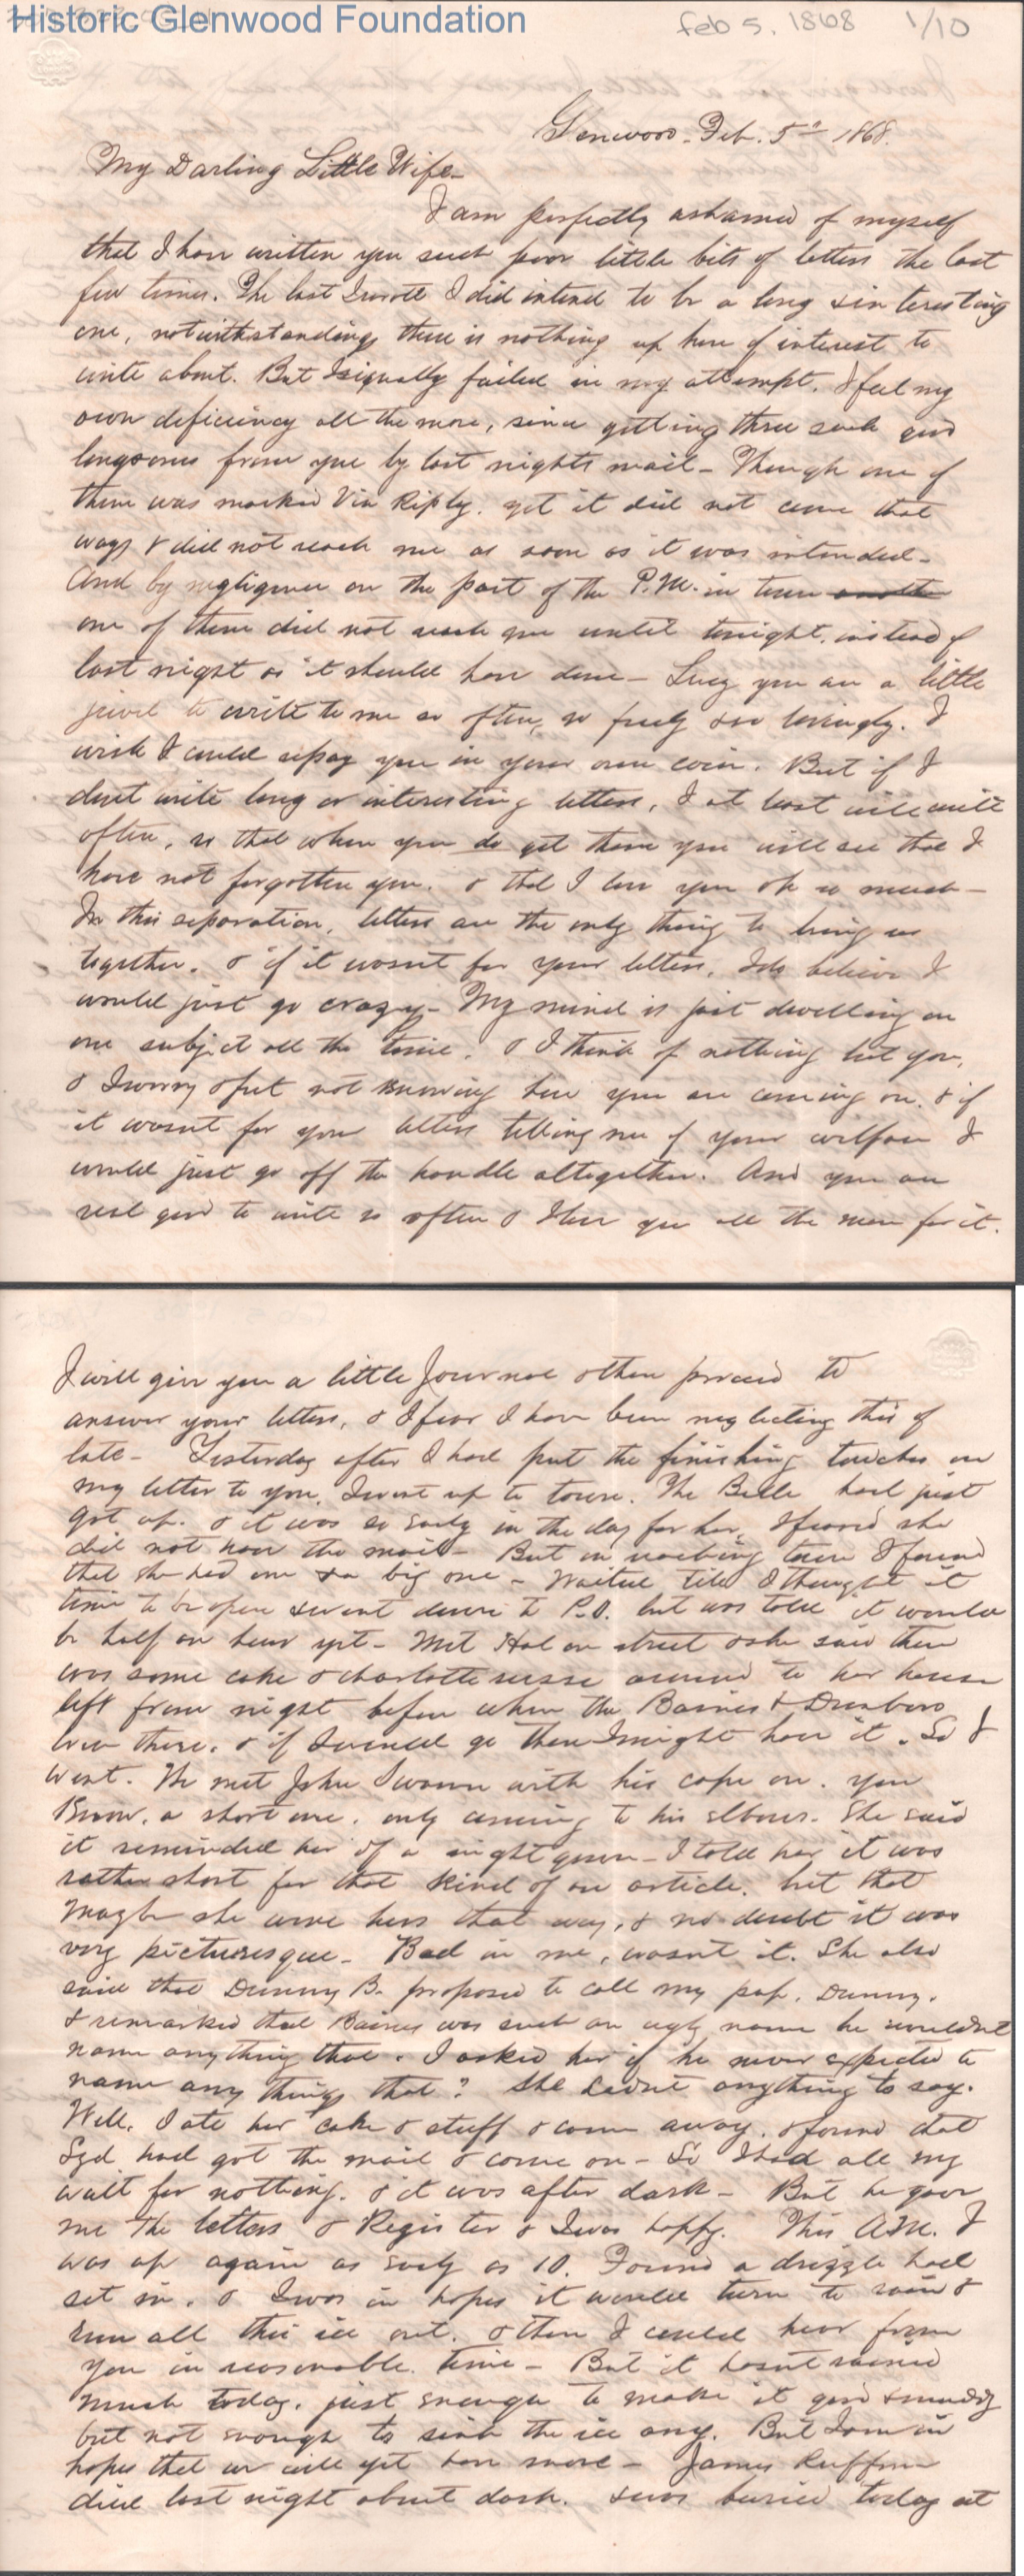 Historic Glenwood Foundation
Feb 5. 1868 1/10
Glenwood. Feb. 5th 1868.
My Darling Little Wife—
I am perfectly ashamed of myself
that I have written you such poor little bits of letters the last
few times. The last I wrote I did intend to be a long & interesting
one, notwithstanding there is nothing up here of interest to
write about. But I signally failed in my attempt. I feel my
own deficiency all the more, since getting three such good
long ones from you by last nights mail— Though one of
them was marked Via Riply. yet it did not come that
way & did not reach me as soon as it was intended—
And by negligence on the part of the P.M. in town another
one of them did not reach me until tonight, instead of
last night as it should have done— Lucy you are a little
jewel to write to me so often, so freely & so lovingly. I
wish I could repay you in your own coin. But if I
dont write long or interesting letters, I at least will write
often, so that when you do get them you will see that I
have not forgotten you. & that I love you oh so much—
In this separation, letters are the only thing to bring us
together. & if it wasnt for your letters, I do believe I
would just go crazy— My mind is just dwelling on
one subject all the time. & I think of nothing but you,
& I worry & fret not knowing how you are coming on. & if
it wasnt for your letters telling me of your welfare I
would just go off the handle altogether. And you are
real good to write so often & I love you all the more for it.
I will give you a little Journal & then proceed to
answer your letters, & I fear I have been neglecting this of
late— Yesterday after I had put the finishing touches on
my letter to you, I went up to town. The Belle had just
got up. & it was so early in the day for her, I feared she
did not have the mail— But on reaching town I found
that she had one & a big one— Waited till I thought it
time to be open & went down to P.O. but was told it would
be half an hour yet— Met Hal on street & she said there
was some cake & charlotte russe around to her house
left from night before when the Baines & Dunbars
were there. & if I would go then I might have it. So I
went. We met John Swann with his cape on. you
Know. a short one. only coming to his elbows. She said
it reminded her of a night gown— I told her it was
rather short for that kind of an article. but that
Maybe she wore hers that way, & no doubt it was
very picturesque— Bad in me, wasnt it. She also
said that Dunny B. proposed to call my pup. Dunny.
& remarked that Baines was such an ugly name he wouldnt
name anything that. I asked her if he never expected to
name any thing that? She hadnt anything to say.
Well, I ate her cake & stuff & came away. & found that
Syd had got the mail & come on— So I had all my
wait for nothing. & it was after dark— But he gave
me the letters & Register & I was happy. This A.M. I
was up again as early as 10. Found a drizzle had
set in. & I was in hopes it would turn to rain &
run all this ice out. & then I could hear from
you in reasonable time— But it hasnt rained
much today. just enough to make it good & muddy
but not enough to sink the ice any. But I am in
hopes that we will yet have more— James Ruffner
died last night about dark. & was buried today at